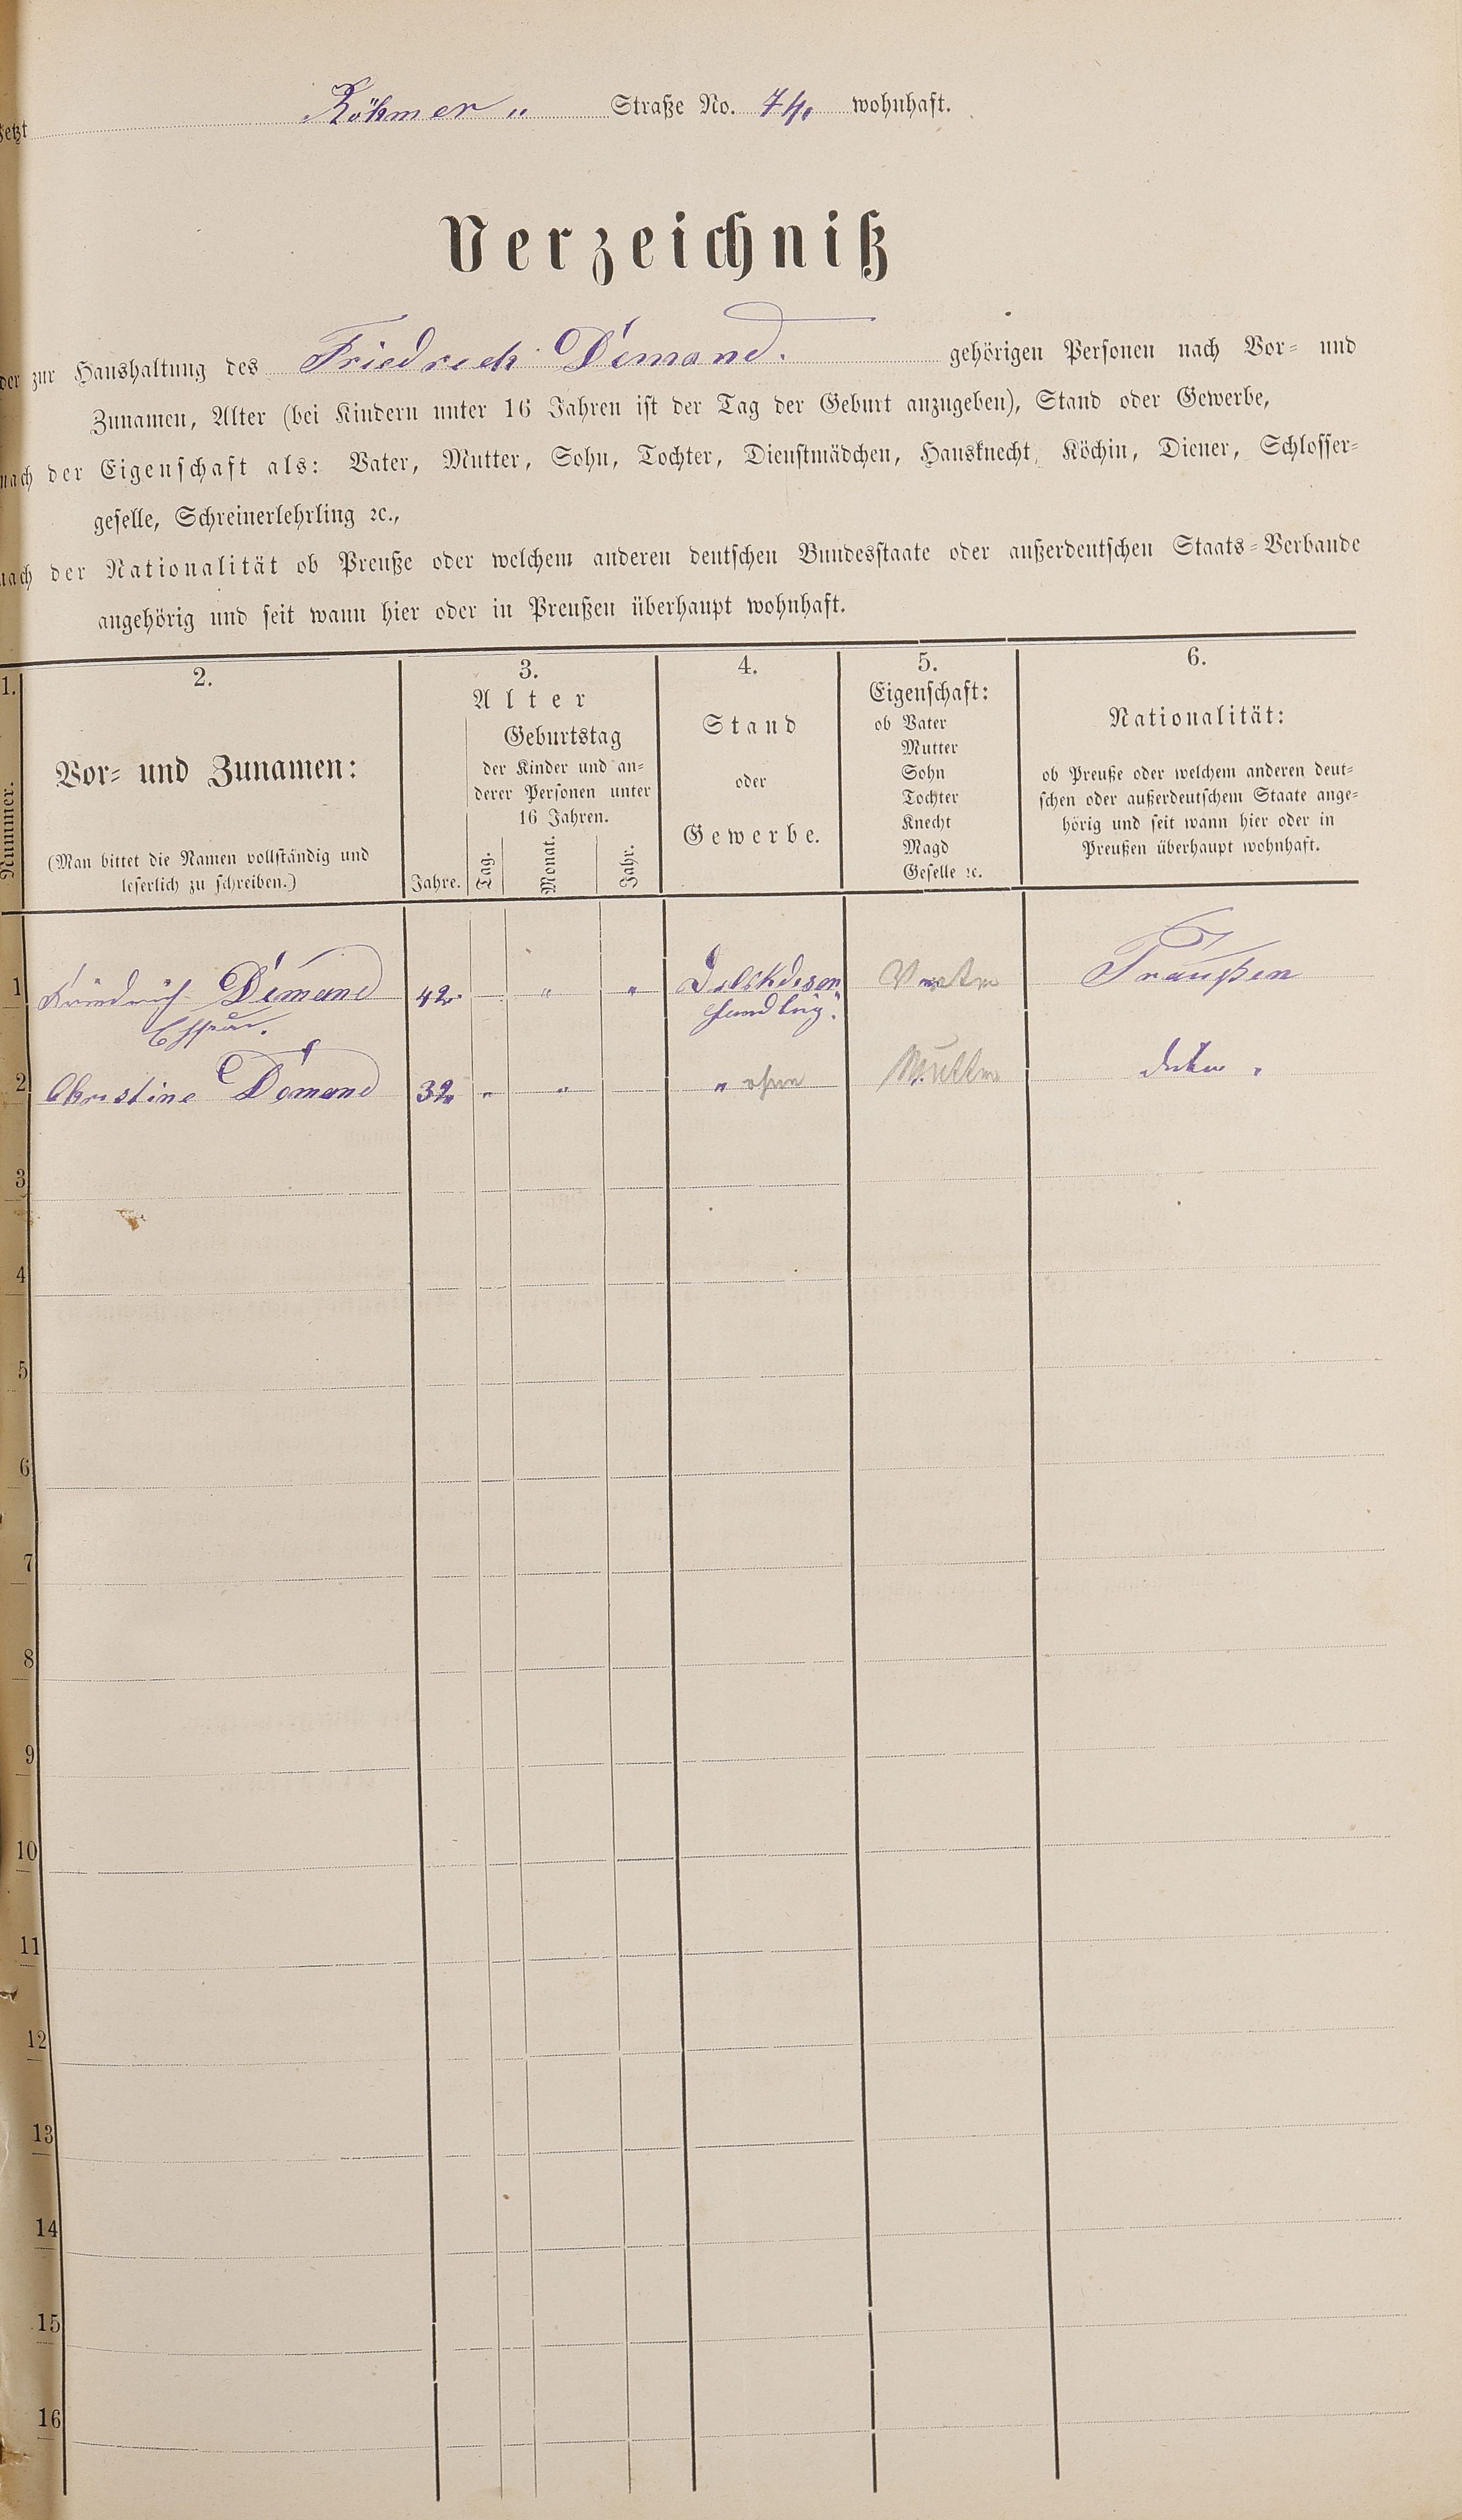 Jetzt Röhmer „ Straße No. 74. wohnhaft.
Verzeichniß
der zur Haushaltung des Friedrech Demand. gehörigen Personen nach Vor- und
Zunamen, Alter (bei Kindern unter 16 Jahren ist der Tag der Geburt anzugeben), Stand oder Gewerbe,
nach der Eigenschaft als: Vater, Mutter, Sohn, Tochter, Dienstmädchen, Hausknecht, Köchin, Diener, Schlosser-
geselle, Schreinerlehrling ꝛc.,
nach der Nationalität ob Preuße oder welchem anderen deutschen Bundesstaate oder außerdeutschen Staats-Verbande
angehörig und seit wann hier oder in Preußen überhaupt wohnhaft.
1.
Nummer.
2.
Vor- und Zunamen:
(Man bittet die Namen vollständig und
leserlich zu schreiben.)
3.
Alter
Geburtstag
der Kinder und an-
derer Personen unter
16 Jahren.
Jahre. Tag. Monat. Jahr.
4.
Stand
oder
Gewerbe.
5.
Eigenschaft:
ob Vater
Mutter
Sohn
Tochter
Knecht
Magd
Geselle ꝛc.
6.
Nationalität:
ob Preuße oder welchem anderen deut-
schen oder außerdeutschem Staate ange-
hörig und seit wann hier oder in
Preußen überhaupt wohnhaft.
1 Friedrich Demand 42 „ „ Vater Praußen
2 Christine Demand 32 „ „ „ ohne Mutter
3
4
5
6
7
8
9
10
11
12
13
14
15
16